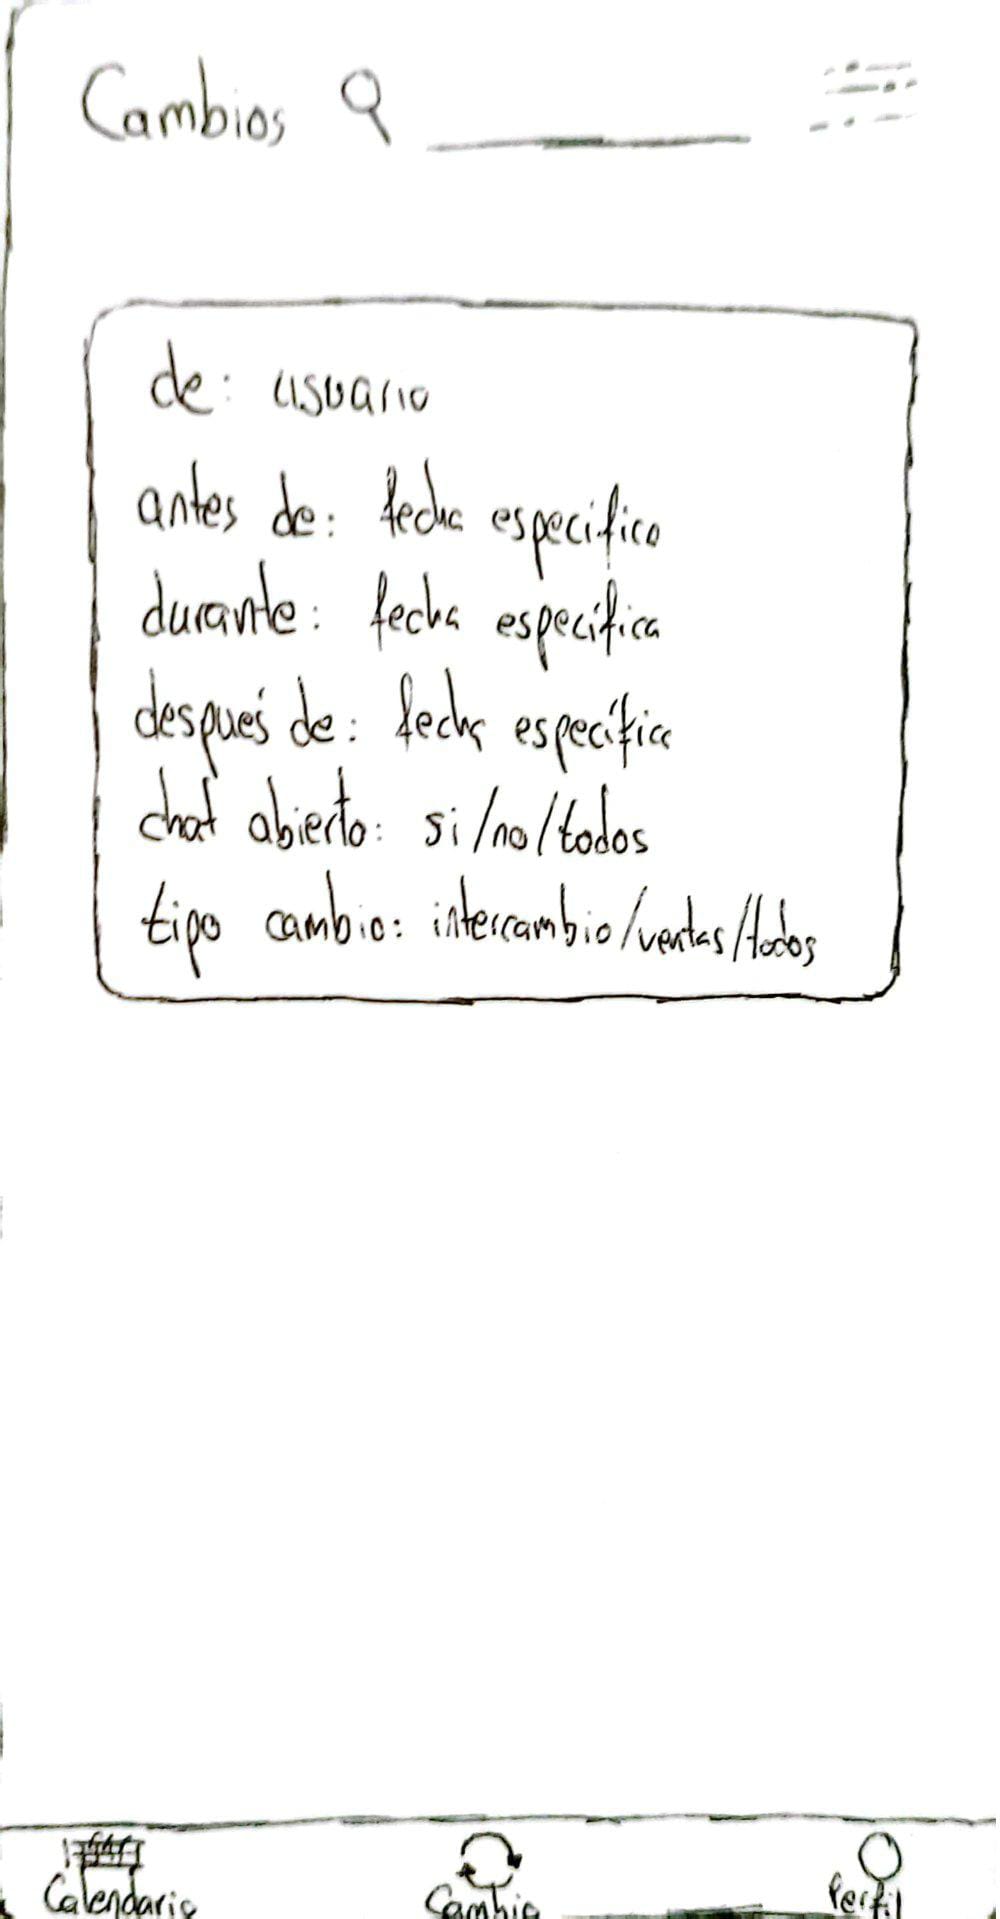 Cambios
de: usuario
antes de: fecha especifica
durante: fecha especifica
después de: fecha específica
chat abierto: si/no/todos
tipo cambio: intercambio/ventas/todos
Calendario Cambio Perfil